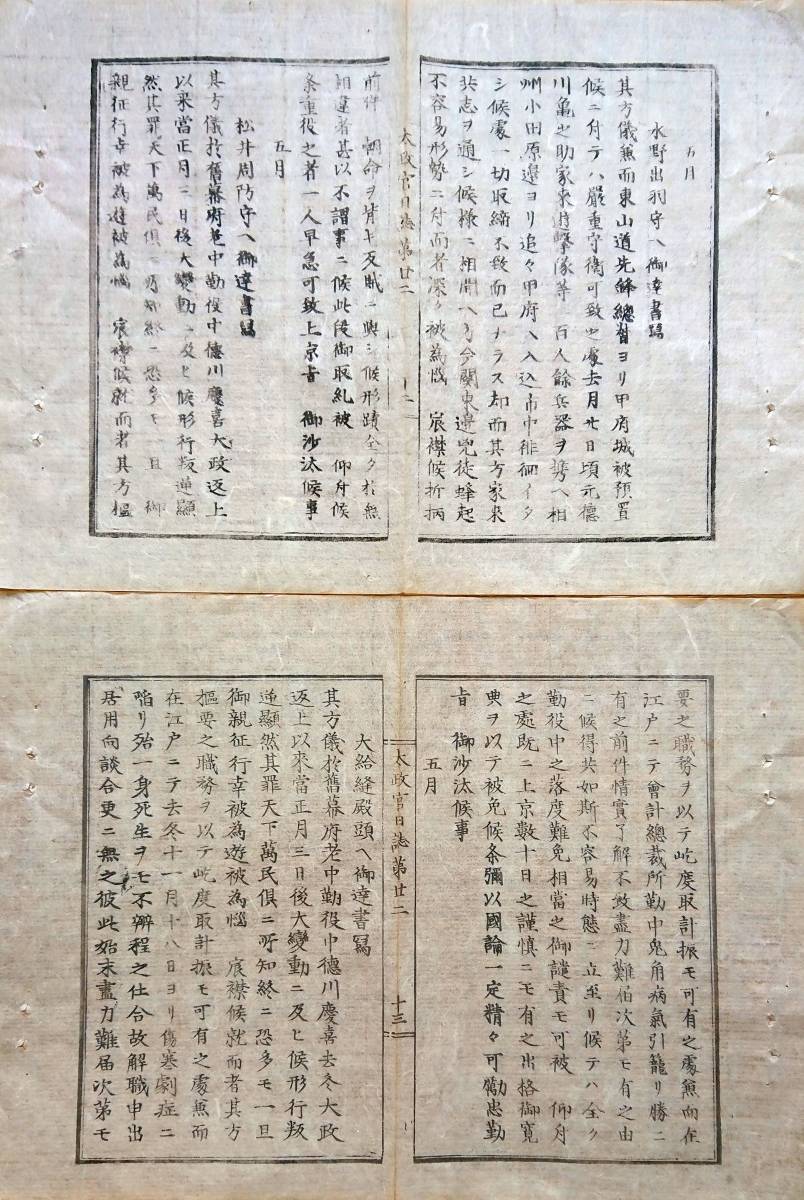 五月
水野出羽守ヘ御達書寫
其方儀兼而東山道先鋒總督ヨリ甲府城被預置
候ニ付テハ嚴重守衛可致之處去月廿日頃元德
川龜之助家來遊擊隊等二百人餘兵器ヲ携ヘ相
州小田原邊ヨリ追々甲府ヘ入込市中徘徊イタ
シ候處一切取締不致而已ナラス却而其方家來
共志ヲ通シ候樣ニ相聞ヘ方今關東邊兇徒蜂起
不容易形勢ニ付而者深ク被為惱 宸襟候折柄
太政官日誌第廿二
十二
前件 朝命ヲ背キ反賊ニ與シ候形蹟全ク於無
相違者甚以不謂事ニ候此段御取糺被 仰付候
条重役之者一人早急可致上京旨 御沙汰候事
五月
松井周防守ヘ御達書寫
其方儀於舊幕府老中勤役中德川慶喜大政返上
以來當正月三日後大變動ニ及ヒ候形行叛逆顯
然其罪天下萬民俱ニ所知終ニ恐多モ一旦 御
親征行幸被為遊被為惱 宸襟候就而者其方樞
要之職務ヲ以テ屹度取計振モ可有之處兼而在
江戶ニテ會計總裁所勤中兎角病氣引籠リ勝ニ
有之前件情實了解不致盡力難屆次第モ有之由
ニ候得共如斯不容易時態ニ立至リ候テハ全ク
勤役中之落度難免相當之御譴責モ可被 仰付
之處既ニ上京數十日之謹慎ニモ有之出格御寬
典ヲ以テ被免候条彌以國論一定精々可勵忠勤
旨 御沙汰候事
五月
太政官日誌第廿二
十三
大給縫殿頭ヘ御達書寫
其方儀於舊幕府老中勤役中德川慶喜去冬大政
返上以來當正月三日後大變動ニ及ヒ候形行叛
逆顯然其罪天下萬民俱ニ所知終ニ恐多モ一旦
御親征行幸被為遊被為惱 宸襟候就而者其方
樞要之職務ヲ以テ屹度取計振モ可有之處兼而
在江戶ニテ去冬十一月十八日ヨリ傷寒劇症ニ
陷リ殆一身死生ヲモ不辨程之仕合故解職申出
居用向談合更ニ無之彼此始末盡力難屆次第モ